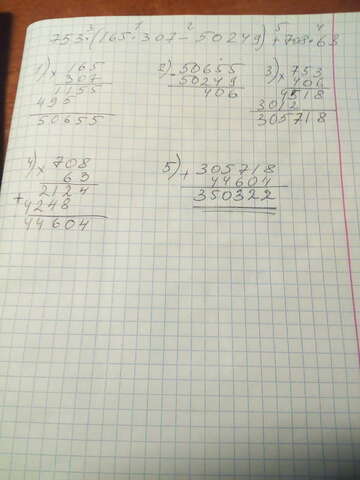 3 1 2 5 4
753·(165·307-50249)+708·63
1) × 165
307
1155
495
50655
2) - 50655
50249
406
3) × 753
406
4518
3012
305718
4) × 708
63
+ 2124
4248
44604
5) + 305718
44604
350322